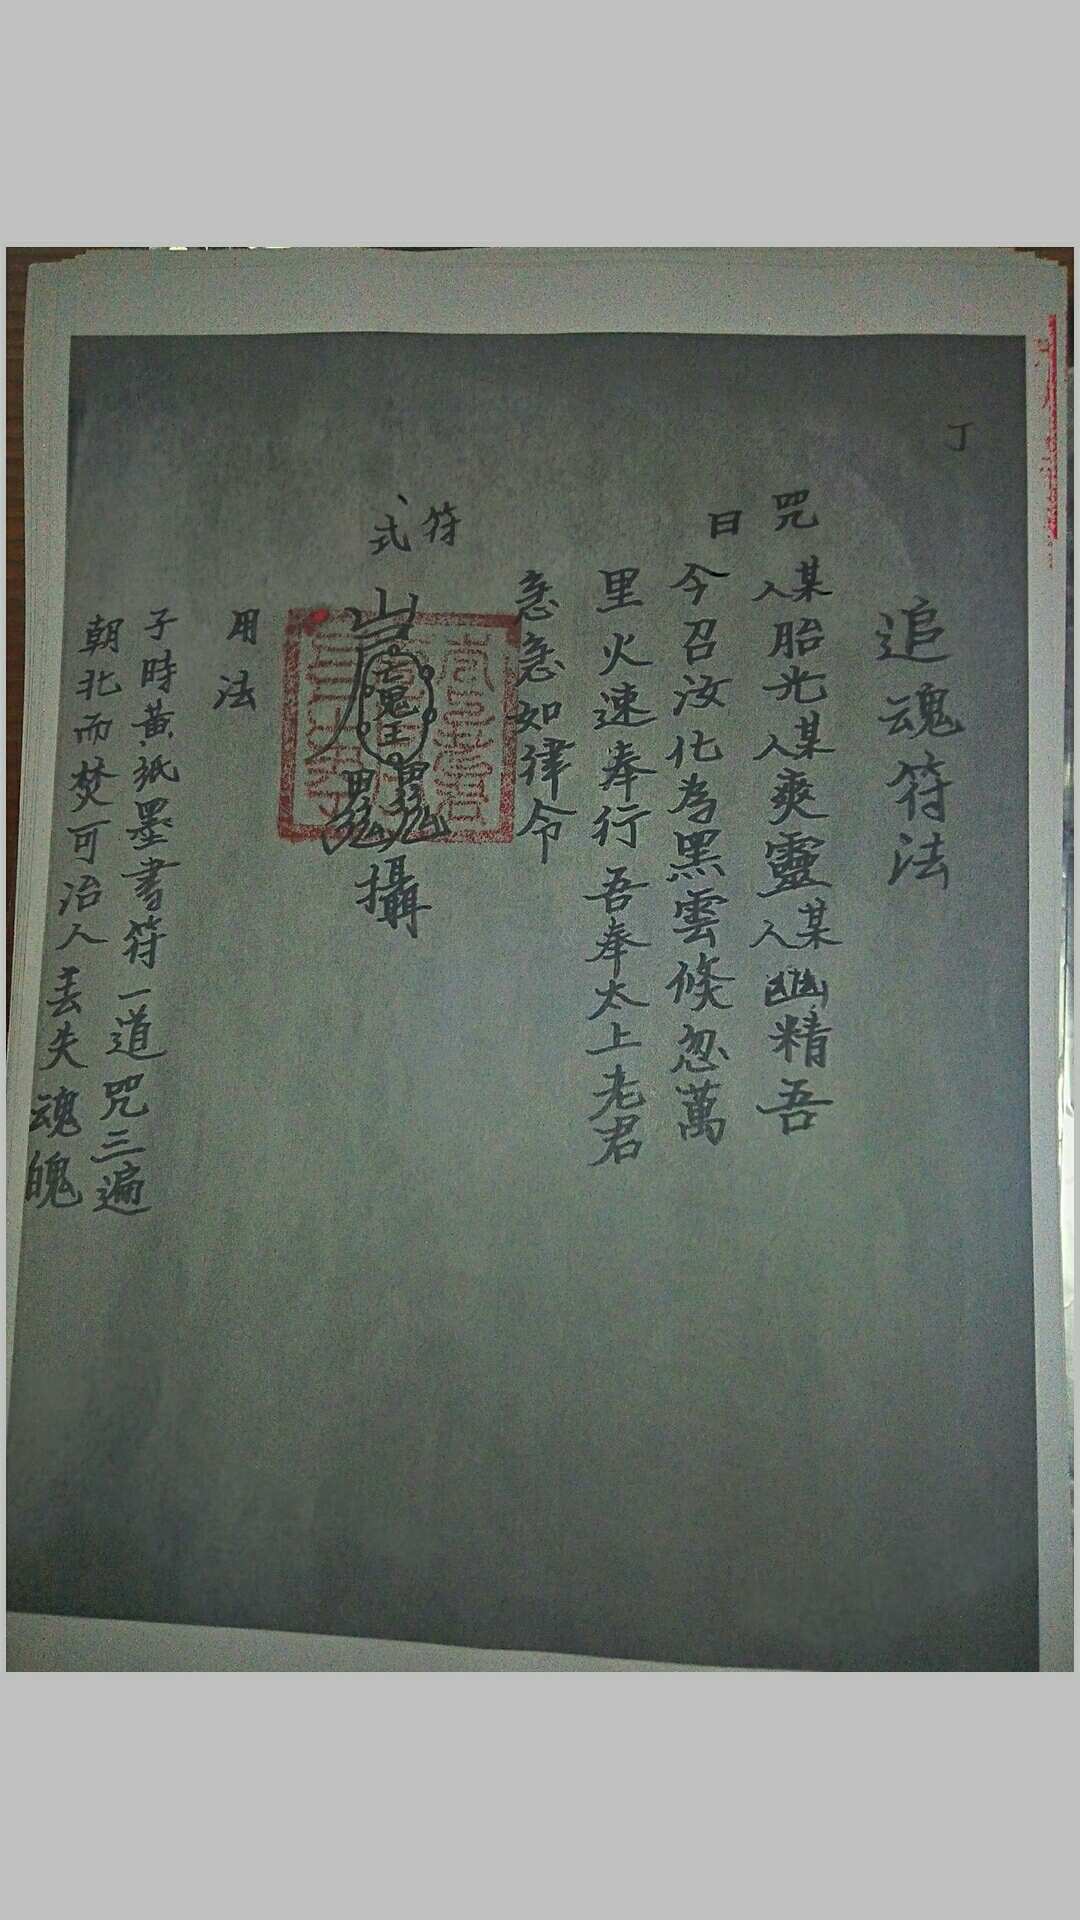 丁
追魂符法
咒曰
某人胎光某人爽靈某人幽精吾
今召汝化為黑雲倏忽萬
里火速奉行吾奉太上老君
急急如律令
符式
攝
用法
子時黃紙墨書符一道咒三遍
朝北而焚可治人丟失魂魄